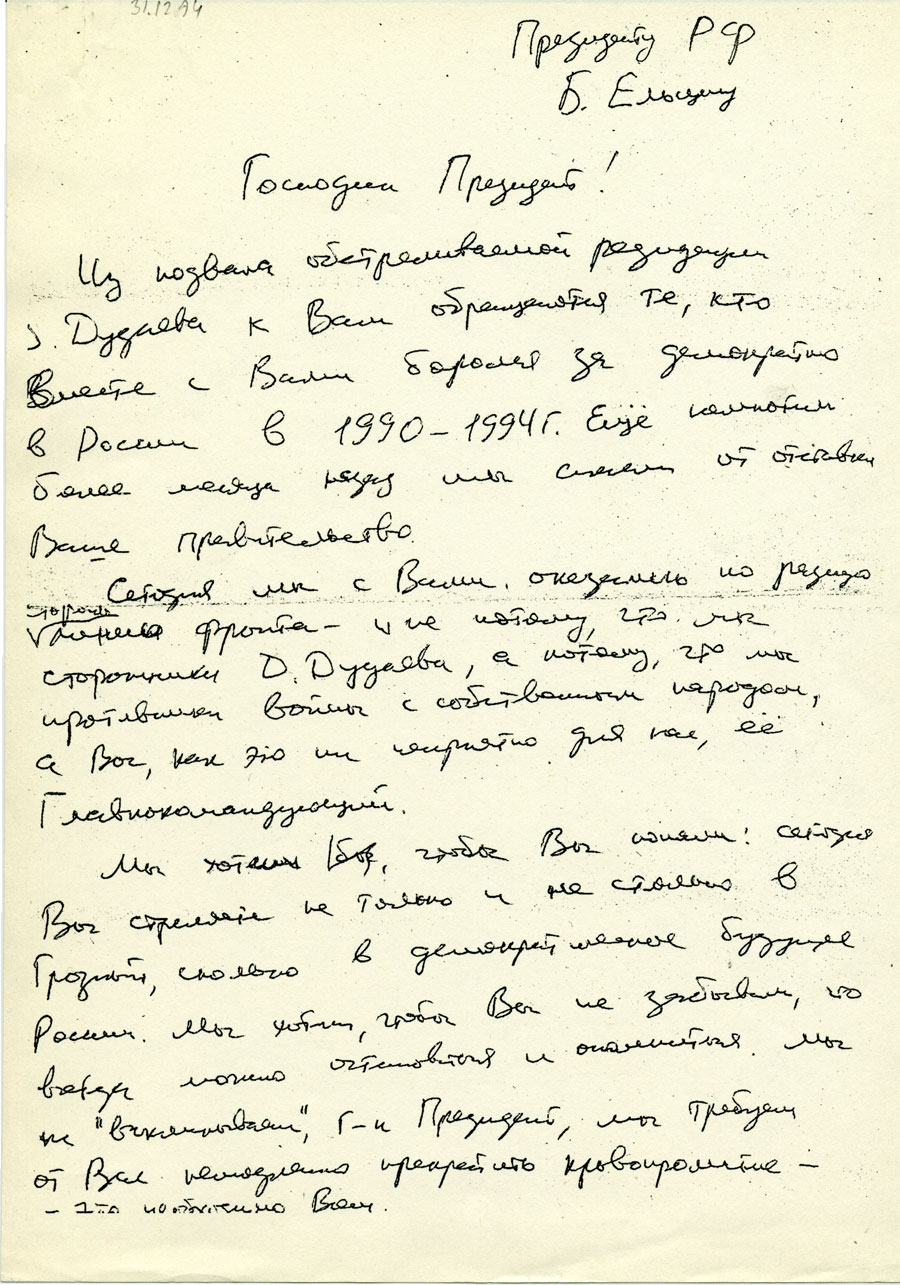 31.12.94
Президенту РФ
Б. Ельцину
Господин Президент!
Из подвала обстреливаемой резиденции
Д. Дудаева к Вам обращаются те, кто
вместе с Вами боролся за демократию
в России в 1990-1994г. Ещё
более месяца назад мы от отставки
Ваше правительство.
Сегодня мы с Вами оказались по разную
сторону
линию фронта - и не потому, что мы
сторонники Д. Дудаева, а потому, что мы
противники войны с собственным народом,
а Вы, как это ни неприятно для нас, её
Главнокомандующий.
Мы хотим бы, чтобы Вы поняли: сегодня
Вы стреляете не только и не столько в
Грозный, сколько в демократическое будущее
России. Мы хотим, чтобы Вы не забывали, что
всегда можно остановиться и опомниться. Мы
не "выклянчиваем", г-н Президент, мы требуем
от Вас немедленно прекратить кровопролитие -
- это Вам.